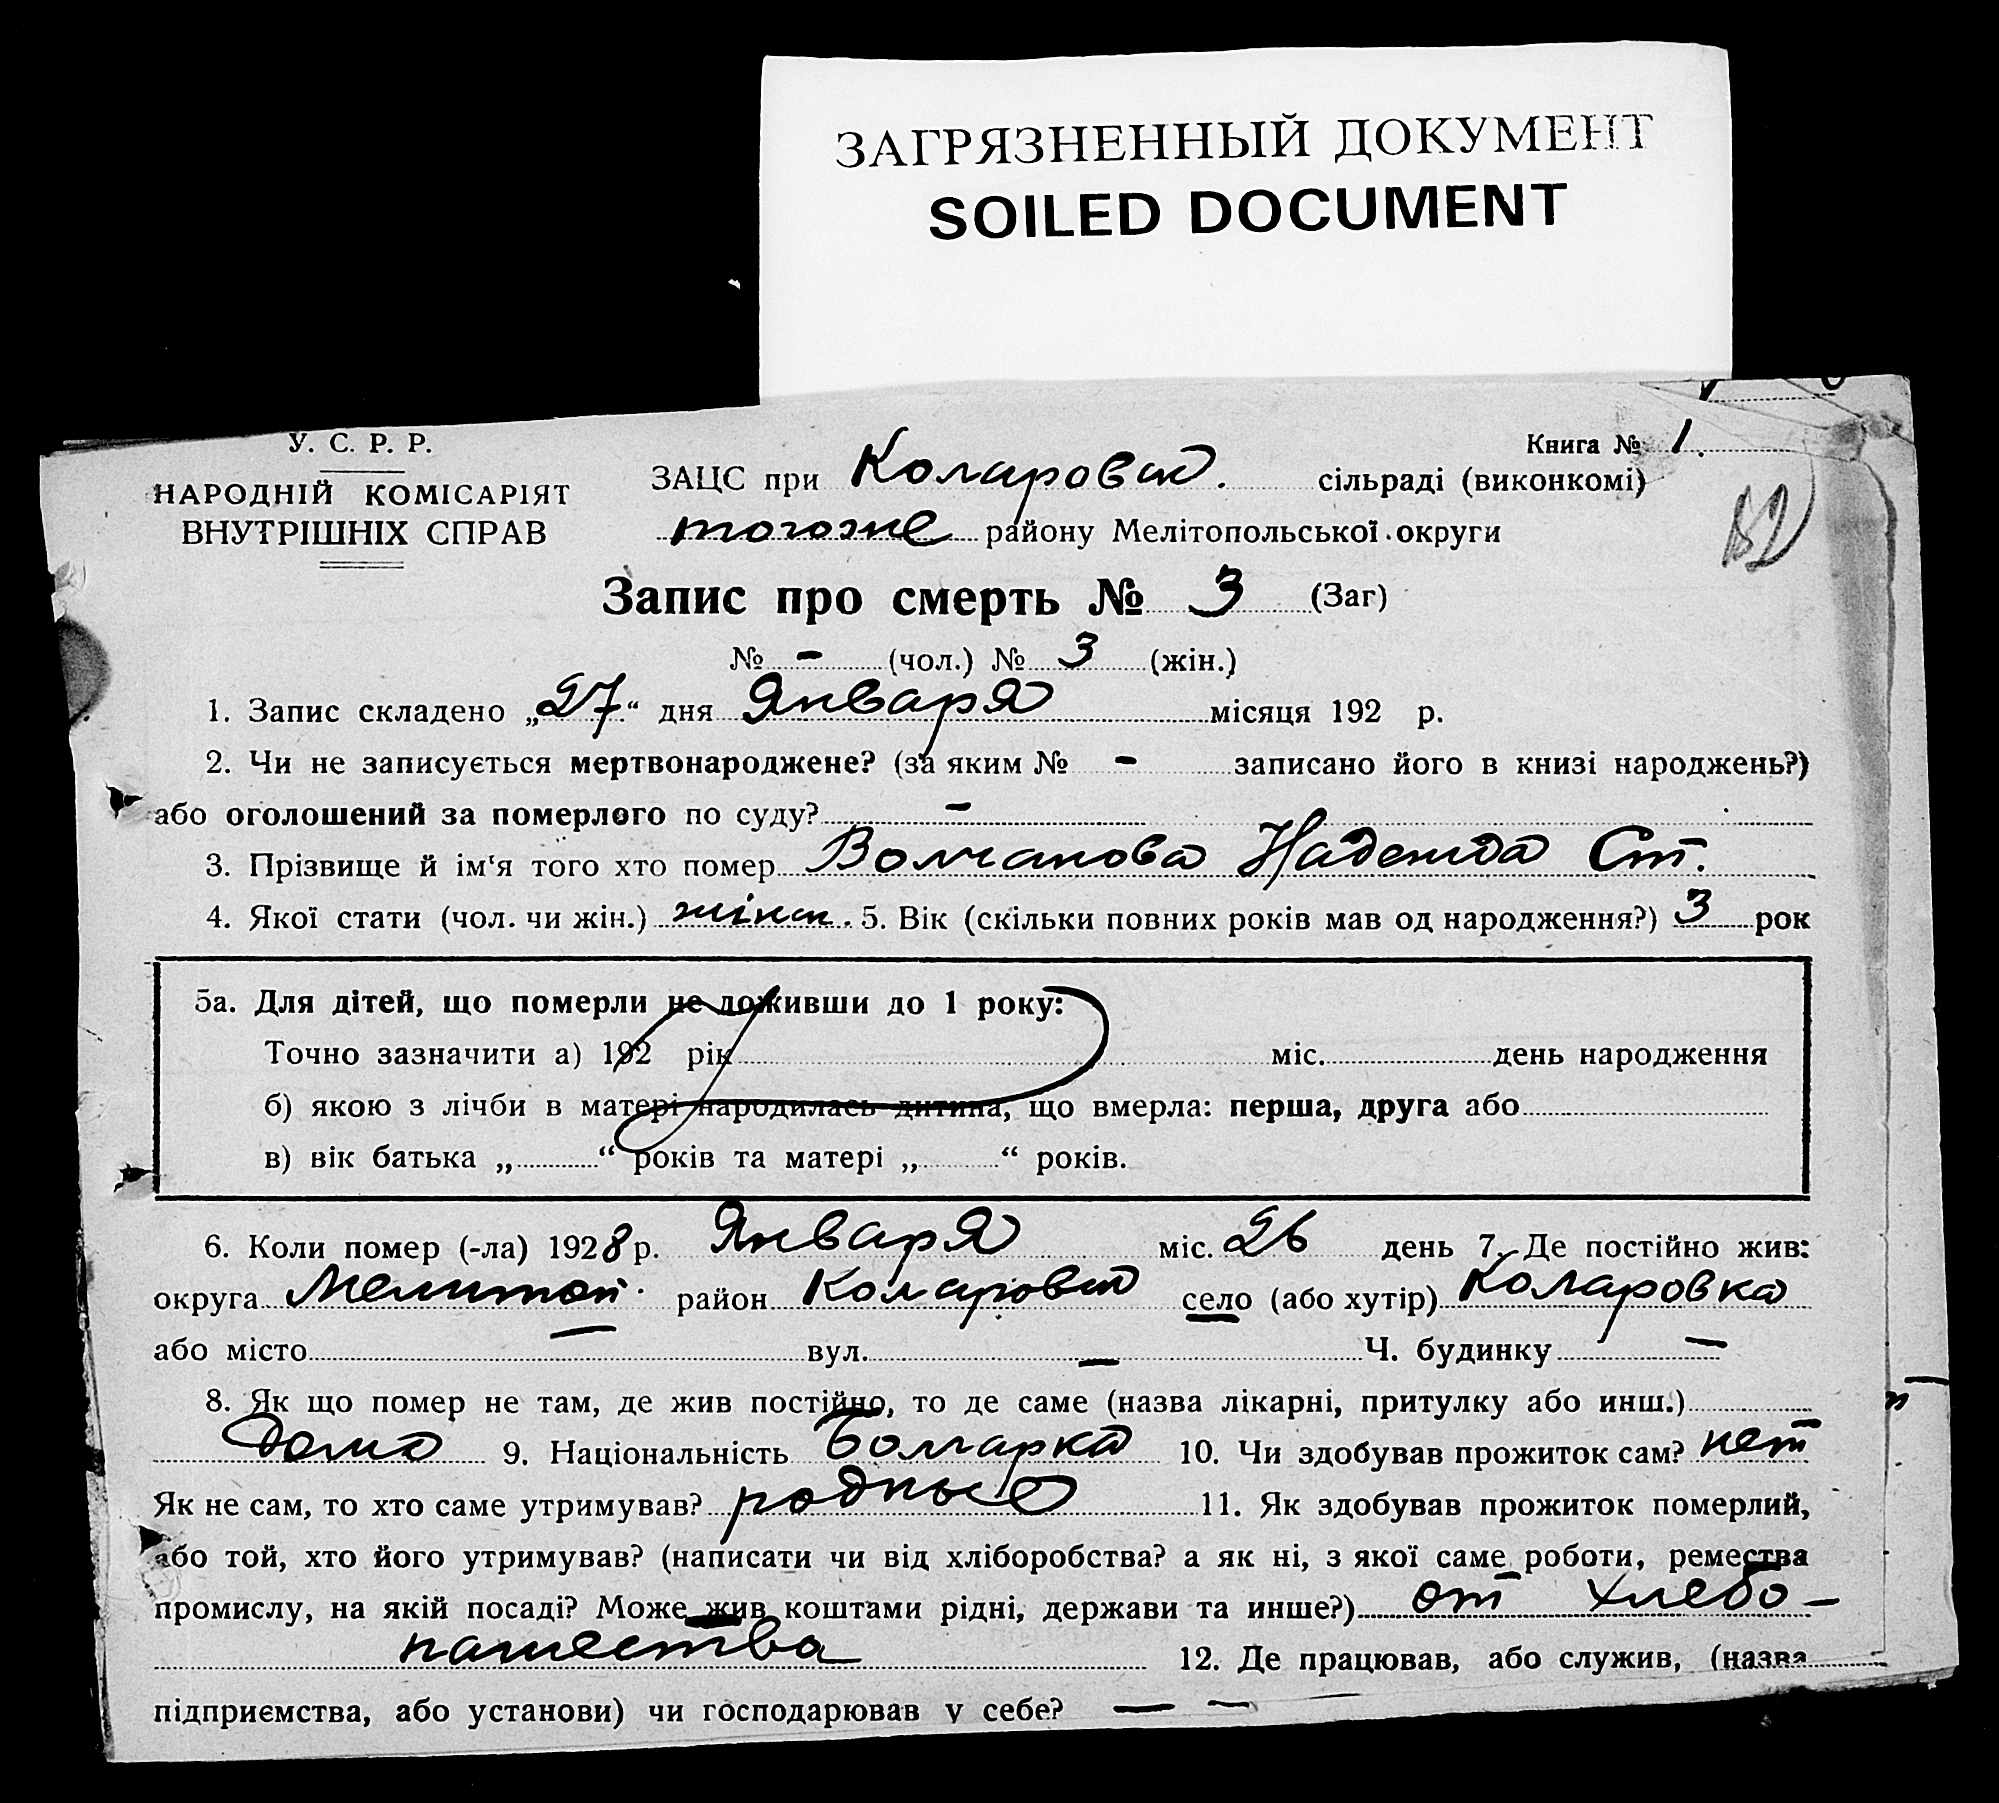 ЗАГРЯЗНЕННЫЙ ДОКУМЕНТ
SOILED DOCUMENT
У. С. Р. Р.
НАРОДНІЙ КОМІСАРІЯТ
ВНУТРІШНІХ СПРАВ
Книга № 1.
ЗАЦС при Коларовск. сільраді (виконкомі)
тогоже району Мелітопольської округи
Запис про смерть № 3 (Заг)
№ - (чол.) № 3 (жін.)
1. Запис складено „27“ дня Января місяця 192 р.
2. Чи не записується мертвонароджене? (за яким № - записано його в книзі народжень?)
або оголошений за померлого по суду? -
3. Прізвище й ім'я того хто помер Волчанова Надежда Ст.
4. Якої стати (чол. чи жін.) жінк. 5. Вік (скільки повних років мав од народження?) 3 рок
5а. Для дітей, що померли не доживши до 1 року:
Точно зазначити а) 192 рік міс. день народження
б) якою з лічби в матері народилась дитина, що вмерла: перша, друга або
в) вік батька „ “ років та матері „ “ років.
6. Коли помер (-ла) 1928 р. Января міс. 26 день 7. Де постійно жив:
округа Мелитоп. район Коларовск село (або хутір) Коларовка
або місто — вул. — Ч. будинку —
8. Як що помер не там, де жив постійно, то де саме (назва лікарні, притулку або инш.)
дома 9. Національність Болгарка 10. Чи здобував прожиток сам? нет
Як не сам, то хто саме утримував? родные 11. Як здобував прожиток померлий,
або той, хто його утримував? (написати чи від хліборобства? а як ні, з якої саме роботи, ремества
промислу, на якій посаді? Може жив коштами рідні, держави та инше?) от хлебо-
пашества 12. Де працював, або служив, (назва
підприємства, або установи) чи господарював у себе? — —